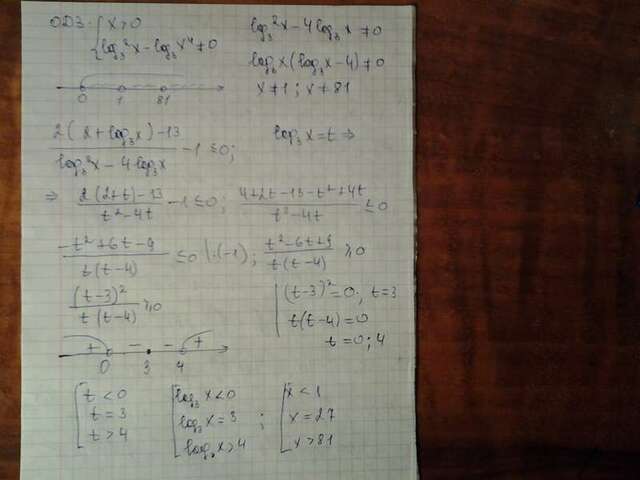 ОДЗ: { x > 0
{ log₃²x - log₃x⁴ ≠ 0
log₃²x - 4log₃x ≠ 0
log₃x(log₃x - 4) ≠ 0
x ≠ 1; x ≠ 81
0 1 81
(2(2 + log₃x) - 13)/(log₃²x - 4log₃x) - 1 ≤ 0; log₃x = t ⇒
⇒ (2(2+t) - 13)/(t² - 4t) - 1 ≤ 0; (4 + 2t - 13 - t² + 4t)/(t² - 4t) ≤ 0
(-t² + 6t - 9)/(t(t-4)) ≤ 0 |·(-1); (t² - 6t + 9)/(t(t-4)) ≥ 0
(t-3)²/(t(t-4)) ≥ 0
(t-3)² = 0; t = 3
t(t-4) = 0
t = 0; 4
+ - - +
0 3 4
[ t < 0
t = 3
t > 4
[ log₃x < 0
log₃x = 3 ;
log₃x > 4
[ x < 1
x = 27
x > 81